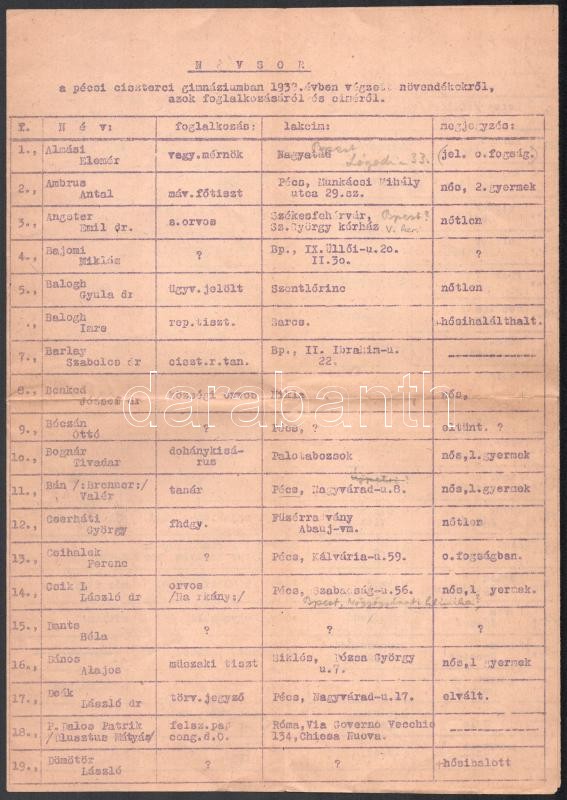 N É V S O R
a pécsi ciszterci gimnáziumban 193?.évben végzett növendékekről,
azok foglalkozásáról és címéről.
T. N é v: foglalkozás: lakcím: megjegyzés:
1., Almási Elemér vegy.mérnök Nagyatád Bpest 33. (jel. o.fogság.)
2., Ambrus Antal máv.főtiszt Pécs, Munkácsi Mihály utca 29.sz. nős, 2.gyermek
3., Angster Emil dr. s.orvos Székesfehérvár, Bpest? Sz.György kórház V. ker. nőtlen
4., Bajomi Miklós ? Bp., IX.Üllői-u.2o. II.3o. ?
5., Balogh Gyula dr ügyv.jelölt Szentlőrinc nőtlen
., Balogh Imre rep.tiszt. Barcs. +hősihaláلthalt.
7., Barlay Szabolcs dr ciszt.r.tan. Bp., II. Ibrahim-u. 22. ----------
8., Benked József dr községi orvos nős,
9., Bóczán Ottó ? Pécs, ? eltünt. ?
1o., Bognár Tivadar dohánykisárus Palotabozsok nős,1.gyermek
11., Bán /:Brenner:/ Valér tanár Pécs, Nagyvárad-u.8. nős,1.gyermek
12., Cserháti György fhdgy. Füzérradvány Abauj-vm. nőtlen
13., Csihalek Ferenc ? Pécs, Kálvária-u.59. o.fogságban.
14., Csik L László dr orvos /Harkány:/ Pécs, Szabadság-u.56. nős,1 gyermek.
Bpest,
15., Dante Béla ? ? ?
16., Dános Alajos müszaki tiszt Siklós, Dózsa György u.7. nős,1 gyermek
17., Deák László dr törv.jegyző Pécs, Nagyvárad-u.17. elvált.
18., P.Dalos Patrik /Dlusztus Mátyás/ felsz.pap cong.d.O. Róma,Via Governo Vecchio 134,Chiesa Nuova. ----------
19., Dömötör László ? ? +hősihalott
darabanth